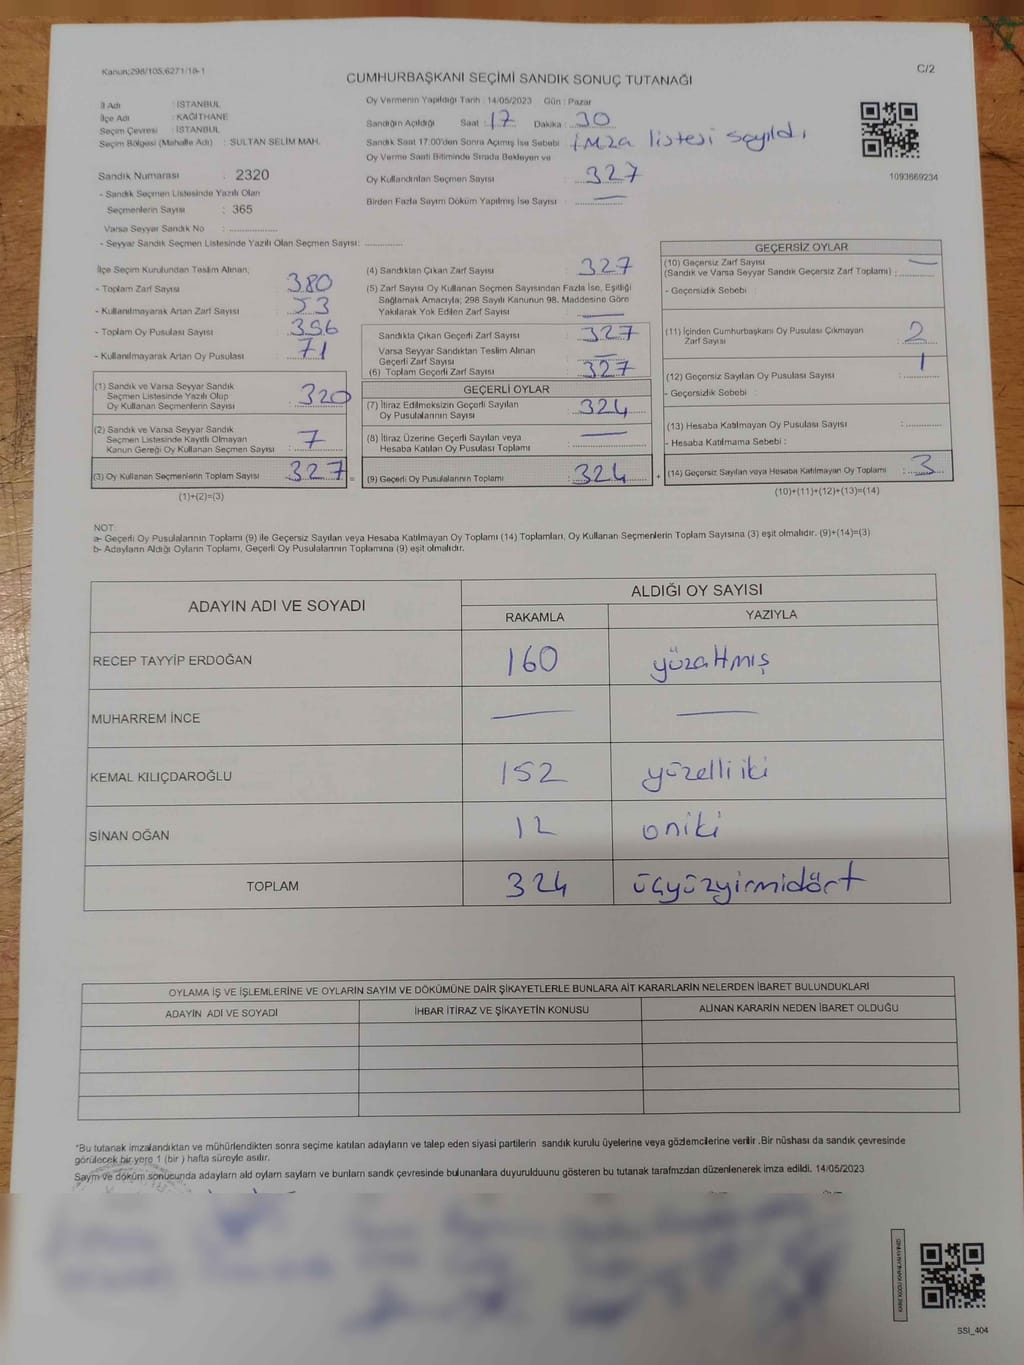 Kanun;298/105,6271/18-1
C/2
CUMHURBAŞKANI SEÇİMİ SANDIK SONUÇ TUTANAĞI
İl Adı : İSTANBUL
İlçe Adı : KAĞITHANE
Seçim Çevresi : İSTANBUL
Seçim Bölgesi (Mahalle Adı) : SULTAN SELİM MAH.
Sandık Numarası : 2320
- Sandık Seçmen Listesinde Yazılı Olan
Seçmenlerin Sayısı : 365
Varsa Seyyar Sandık No : ................
- Seyyar Sandık Seçmen Listesinde Yazılı Olan Seçmen Sayısı: .............
Oy Vermenin Yapıldığı Tarih : 14/05/2023 Gün : Pazar
Sandığın Açıldığı Saat : 17 Dakika : 30
Sandık Saat 17:00'den Sonra Açımış İse Sebebi imza listesi sayıldı
Oy Verme Saati Bitiminde Sırada Bekleyen ve
Oy Kullandırılan Seçmen Sayısı : 327
Birden Fazla Sayım Döküm Yapılmış İse Sayısı : —
1093669234
İlçe Seçim Kurulundan Teslim Alınan;
- Toplam Zarf Sayısı : 380
- Kullanılmayarak Artan Zarf Sayısı : 53
- Toplam Oy Pusulası Sayısı : 396
- Kullanılmayarak Artan Oy Pusulası : 71
(1) Sandık ve Varsa Seyyar Sandık
Seçmen Listesinde Yazılı Olup
Oy Kullanan Seçmenlerin Sayısı : 320
(2) Sandık ve Varsa Seyyar Sandık
Seçmen Listesinde Kayıtlı Olmayan
Kanun Gereği Oy Kullanan Seçmen Sayısı : 7
(3) Oy Kullanan Seçmenlerin Toplam Sayısı : 327 =
(1)+(2)=(3)
(4) Sandıktan Çıkan Zarf Sayısı : 327
(5) Zarf Sayısı Oy Kullanan Seçmen Sayısından Fazla İse, Eşitliği
Sağlamak Amacıyla; 298 Sayılı Kanunun 98. Maddesine Göre
Yakılarak Yok Edilen Zarf Sayısı : —
Sandıkta Çıkan Geçerli Zarf Sayısı : 327
Varsa Seyyar Sandıktan Teslim Alınan
Geçerli Zarf Sayısı : —
(6) Toplam Geçerli Zarf Sayısı : 327
GEÇERLİ OYLAR
(7) İtiraz Edilmeksizin Geçerli Sayılan
Oy Pusulalarının Sayısı : 324
(8) İtiraz Üzerine Geçerli Sayılan veya
Hesaba Katılan Oy Pusulası Toplamı : —
(9) Geçerli Oy Pusulalarının Toplamı : 324 +
GEÇERSİZ OYLAR
(10) Geçersiz Zarf Sayısı —
(Sandık ve Varsa Seyyar Sandık Geçersiz Zarf Toplamı) :
- Geçersizlik Sebebi :
(11) İçinden Cumhurbaşkanı Oy Pusulası Çıkmayan
Zarf Sayısı : 2
(12) Geçersiz Sayılan Oy Pusulası Sayısı : 1
- Geçersizlik Sebebi :
(13) Hesaba Katılmayan Oy Pusulası Sayısı :
- Hesaba Katılmama Sebebi :
(14) Geçersiz Sayılan veya Hesaba Katılmayan Oy Toplamı : 3
(10)+(11)+(12)+(13)=(14)
NOT:
a- Geçerli Oy Pusulalarının Toplamı (9) ile Geçersiz Sayılan veya Hesaba Katılmayan Oy Toplamı (14) Toplamları, Oy Kullanan Seçmenlerin Toplam Sayısına (3) eşit olmalıdır. (9)+(14)=(3)
b- Adayların Aldığı Oyların Toplamı, Geçerli Oy Pusulalarının Toplamına (9) eşit olmalıdır.
ADAYIN ADI VE SOYADI
ALDIĞI OY SAYISI
RAKAMLA YAZIYLA
RECEP TAYYİP ERDOĞAN 160 yüzaltmış
MUHARREM İNCE — —
KEMAL KILIÇDAROĞLU 152 yüzelliiki
SİNAN OĞAN 12 oniki
TOPLAM 324 üçyüzyirmidört
OYLAMA İŞ VE İŞLEMLERİNE VE OYLARIN SAYIM VE DÖKÜMÜNE DAİR ŞİKAYETLERLE BUNLARA AİT KARARLARIN NELERDEN İBARET BULUNDUKLARI
ADAYIN ADI VE SOYADI İHBAR İTİRAZ VE ŞİKAYETİN KONUSU ALINAN KARARIN NEDEN İBARET OLDUĞU
*Bu tutanak imzalandıktan ve mühürlendikten sonra seçime katılan adayların ve talep eden siyasi partilerin sandık kurulu üyelerine veya gözlemcilerine verilir .Bir nüshası da sandık çevresinde
görülecek bir yere 1 (bir ) hafta süreyle asılır.
Sayım ve döküm sonucunda adayların ald oyların sayların ve bunların sandk çevresinde bulunanlara duyurulduunu gösteren bu tutanak tarafmzdan düzenlenerek imza edildi. 14/05/2023
SSI_404